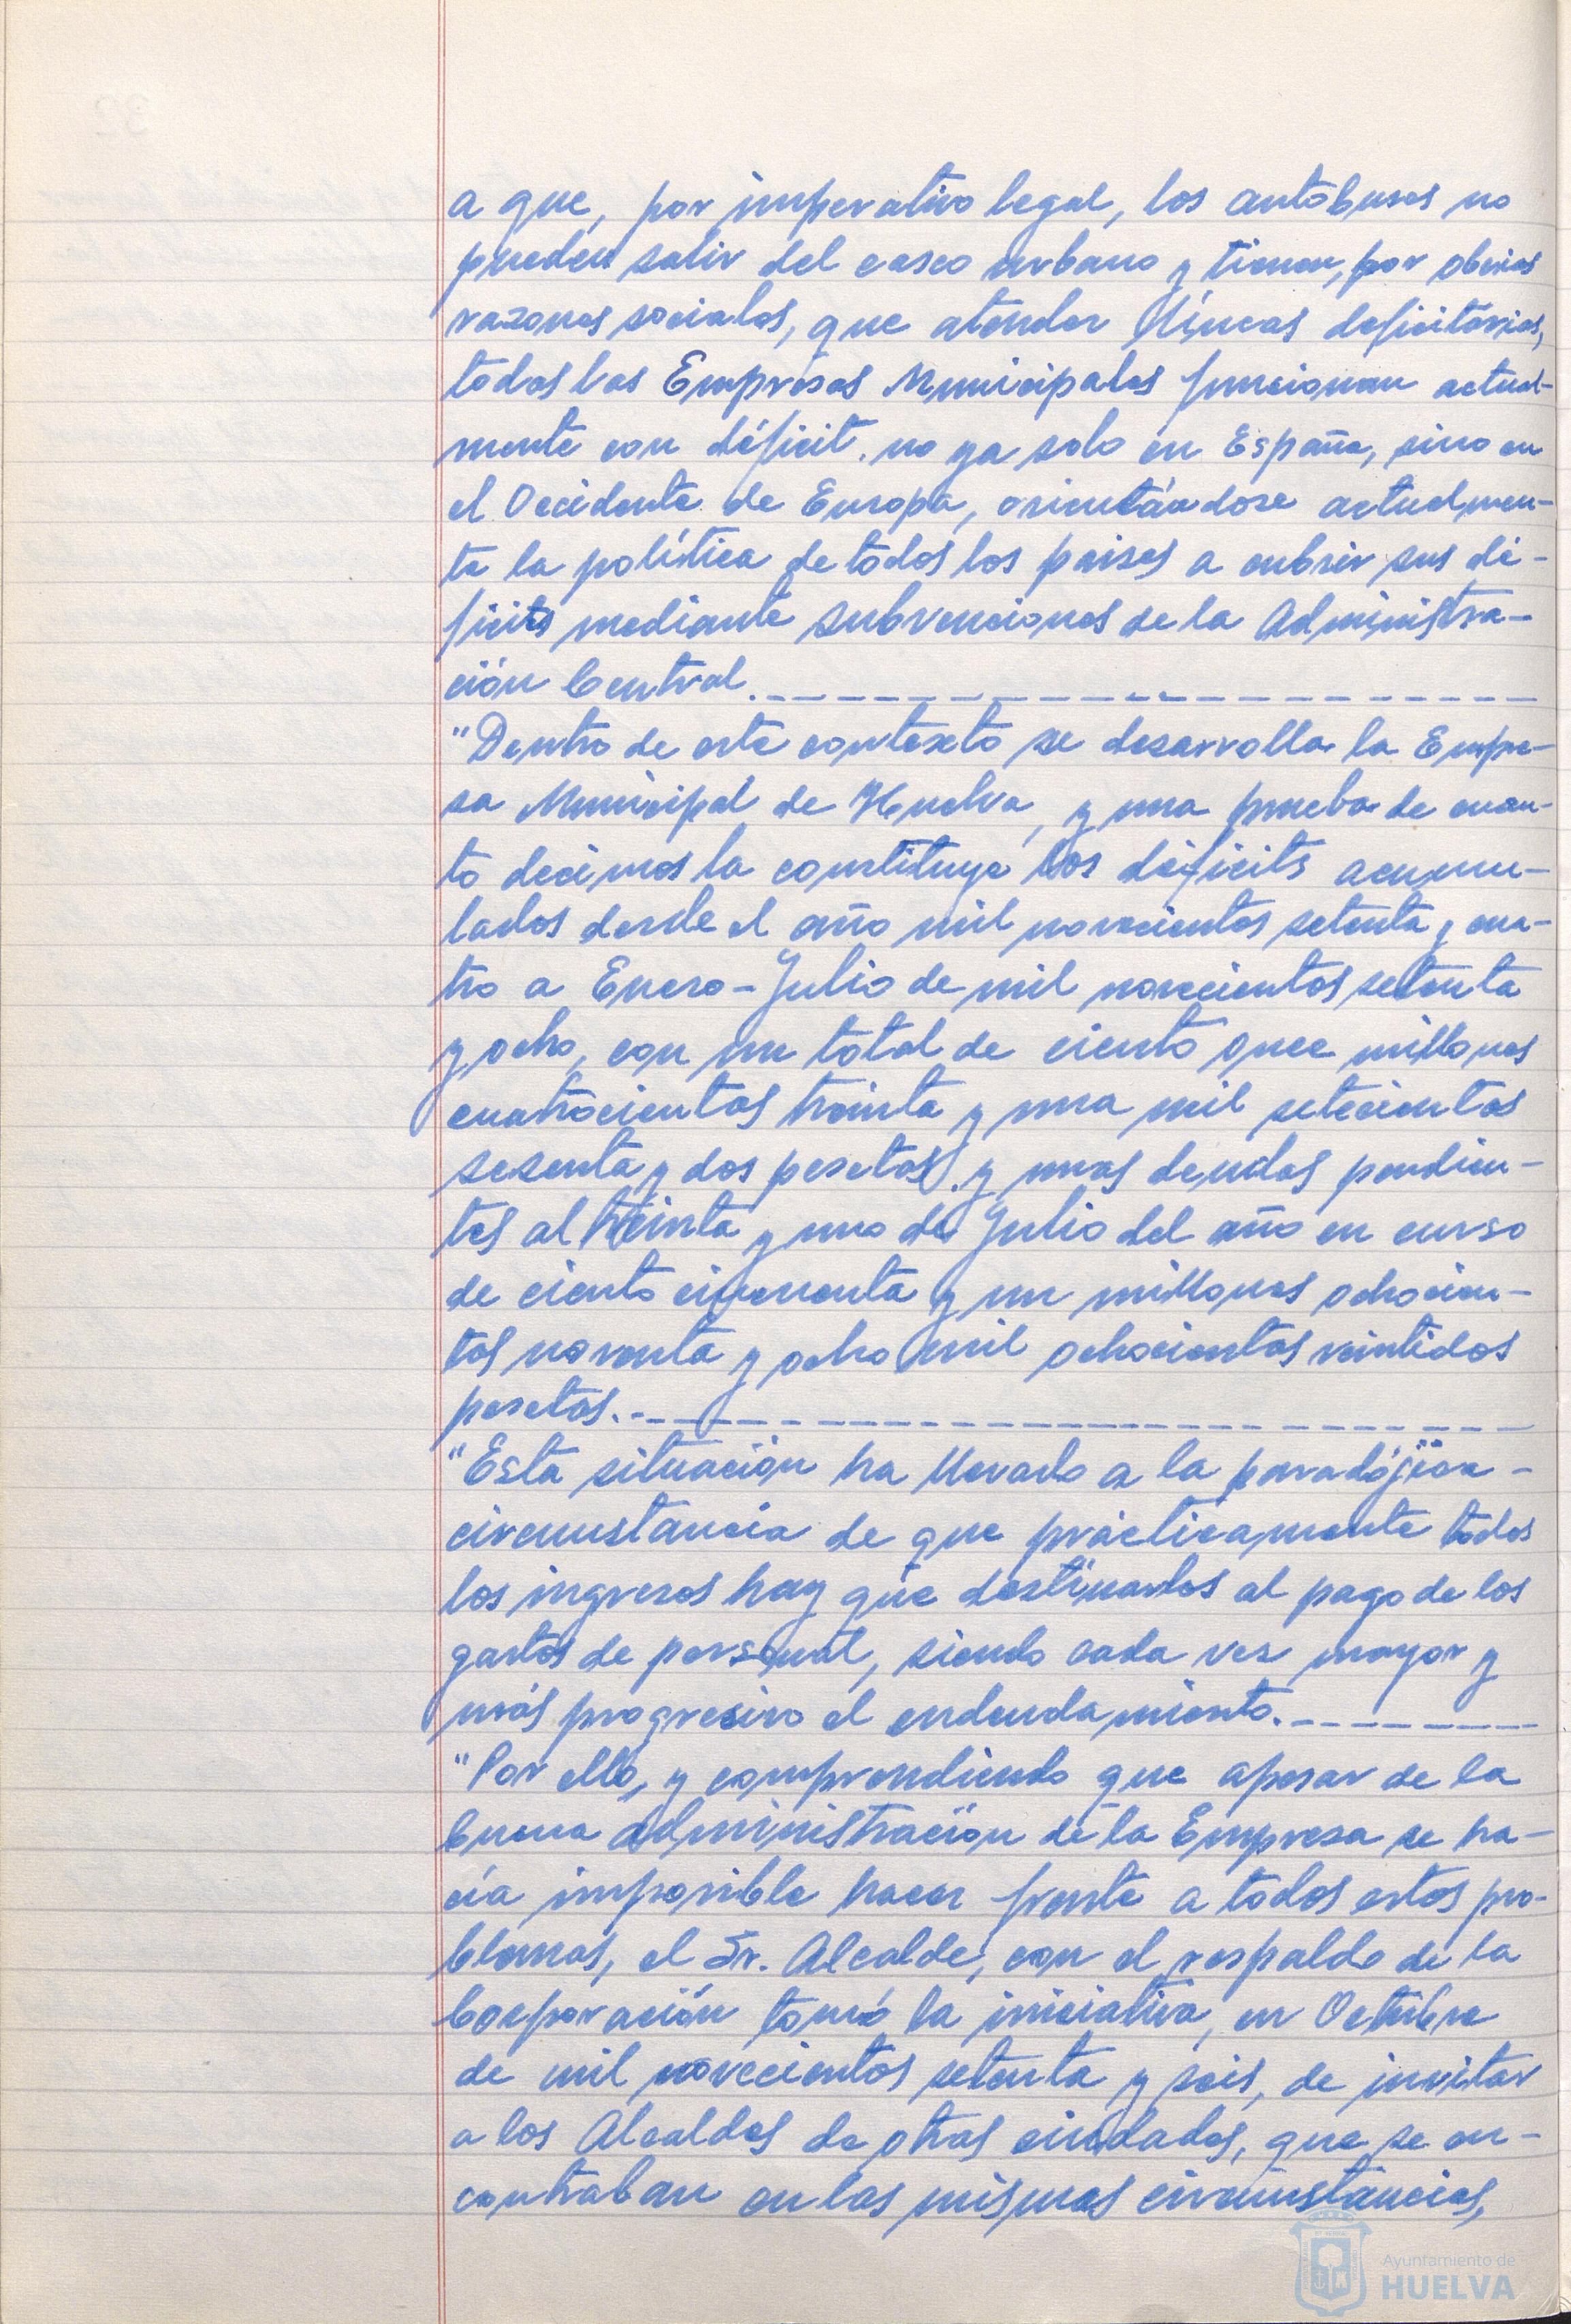 a que, por imperativo legal, los autobuses no
pueden salir del casco urbano y tienen, por obvias
razones sociales, que atender líneas deficitarias,
todas las Empresas Municipales funcionan actual-
mente con déficit. no ya solo en España, sino en
el Occidente de Europa, orientándose actualmen-
te la política de todos los paises a cubrir sus dé-
ficits mediante subvenciones de la Administra-
ción Central.
"Dentro de este contexto se desarrolla la Empre-
sa Municipal de Huelva, y una prueba de cuan-
to decimos la constituye los déficits acumu-
lados desde el año mil novecientos setenta y cua-
tro a Enero-Julio de mil novecientos setenta
y ocho, con un total de ciento once millones
cuatrocientas treinta y una mil setecientas
sesenta y dos pesetas, y unas deudas pendien-
tes al treinta y uno de Julio del año en curso
de ciento cincuenta y un millones ochocien-
tas noventa y ocho mil ochocientas veintidos
pesetas.
"Esta situación ha llevado a la paradójica -
circunstancia de que prácticamente todos
los ingresos hay que destinarlos al pago de los
gastos de personal, siendo cada vez mayor y
más progresivo el endeudamiento.
"Por ello, y comprendiendo que apesar de la
buena administración de la Empresa se ha-
cía imposible hacer frente a todos estos pro-
blemas, el Sr. Alcalde, con el respaldo de la
Corporación tomó la iniciativa, en Octubre
de mil novecientos setenta y seis, de invitar
a los Alcaldes de otras ciudades, que se en-
contraban en las mismas circunstancias,
Ayuntamiento de
HUELVA